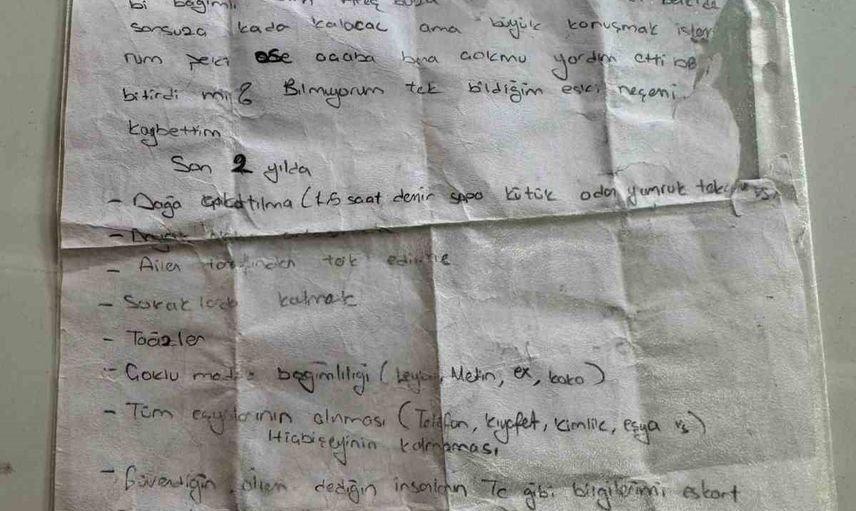 bi bağımlı
sonsuza kada kalacac ama büyük konuşmak ister
rum peki ose acaba bana yordım etti be
bitirdi mi? Bilmıyorum tek bildiğim eski neşemi
kaybettim
Son 2 yılda
- Dağa (1,5 saat demir sopa kütük odn yumruk tekme vs)
- Ailen tarfından tek edilme
- Sokaklada kalmak
- Taciizler
- Çoklu madde bağımlılığı (Metin, ex, koko)
- Tüm eşylarının alınması (Telefon, kıyafet, kimlik, eşya vs)
Hiçbişeyinin kalmaması
- Güvendiğin ailen dediğin insanların Tc gibi bilgilerimi eskort